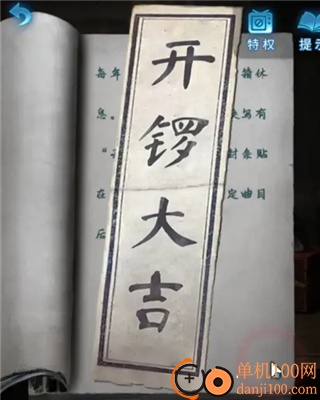 特权
提示
开锣大吉
每年
箱休
息。
写有
封条贴
在
定曲目
后
单机100网
danji100.com